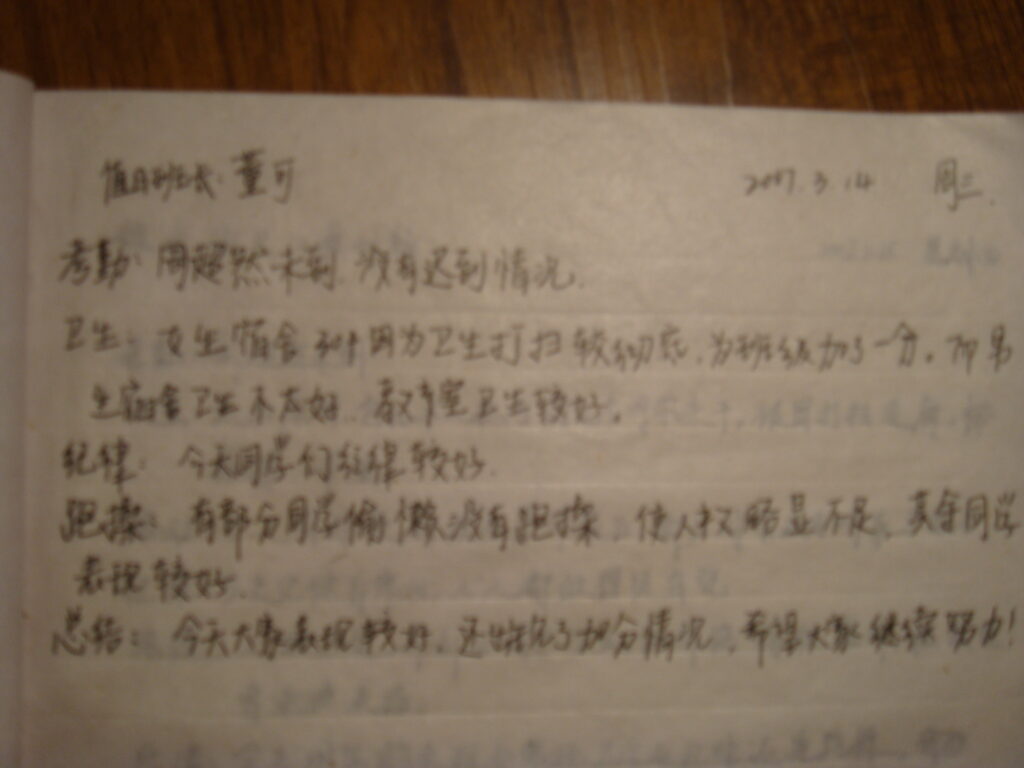 值日班长：董可 2007.3.14 周三.
考勤：周超然未到.没有迟到情况.
卫生：女生宿舍304因为卫生打扫较彻底.为班级加了一分.而男
生宿舍卫生不太好.教室卫生较好.
纪律：今天同学们纪律较好.
跑操：有部分同学偷懒没有跑操.使人数略显不足.其余同学
表现较好.
总结：今天大家表现较好.还出现了加分情况.希望大家继续努力!